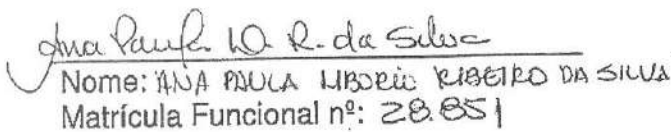 Ana Paula L. R. da Silva
Nome: ANA PAULA LIBORIO RIBEIRO DA SILVA
Matrícula Funcional nº: 28.851